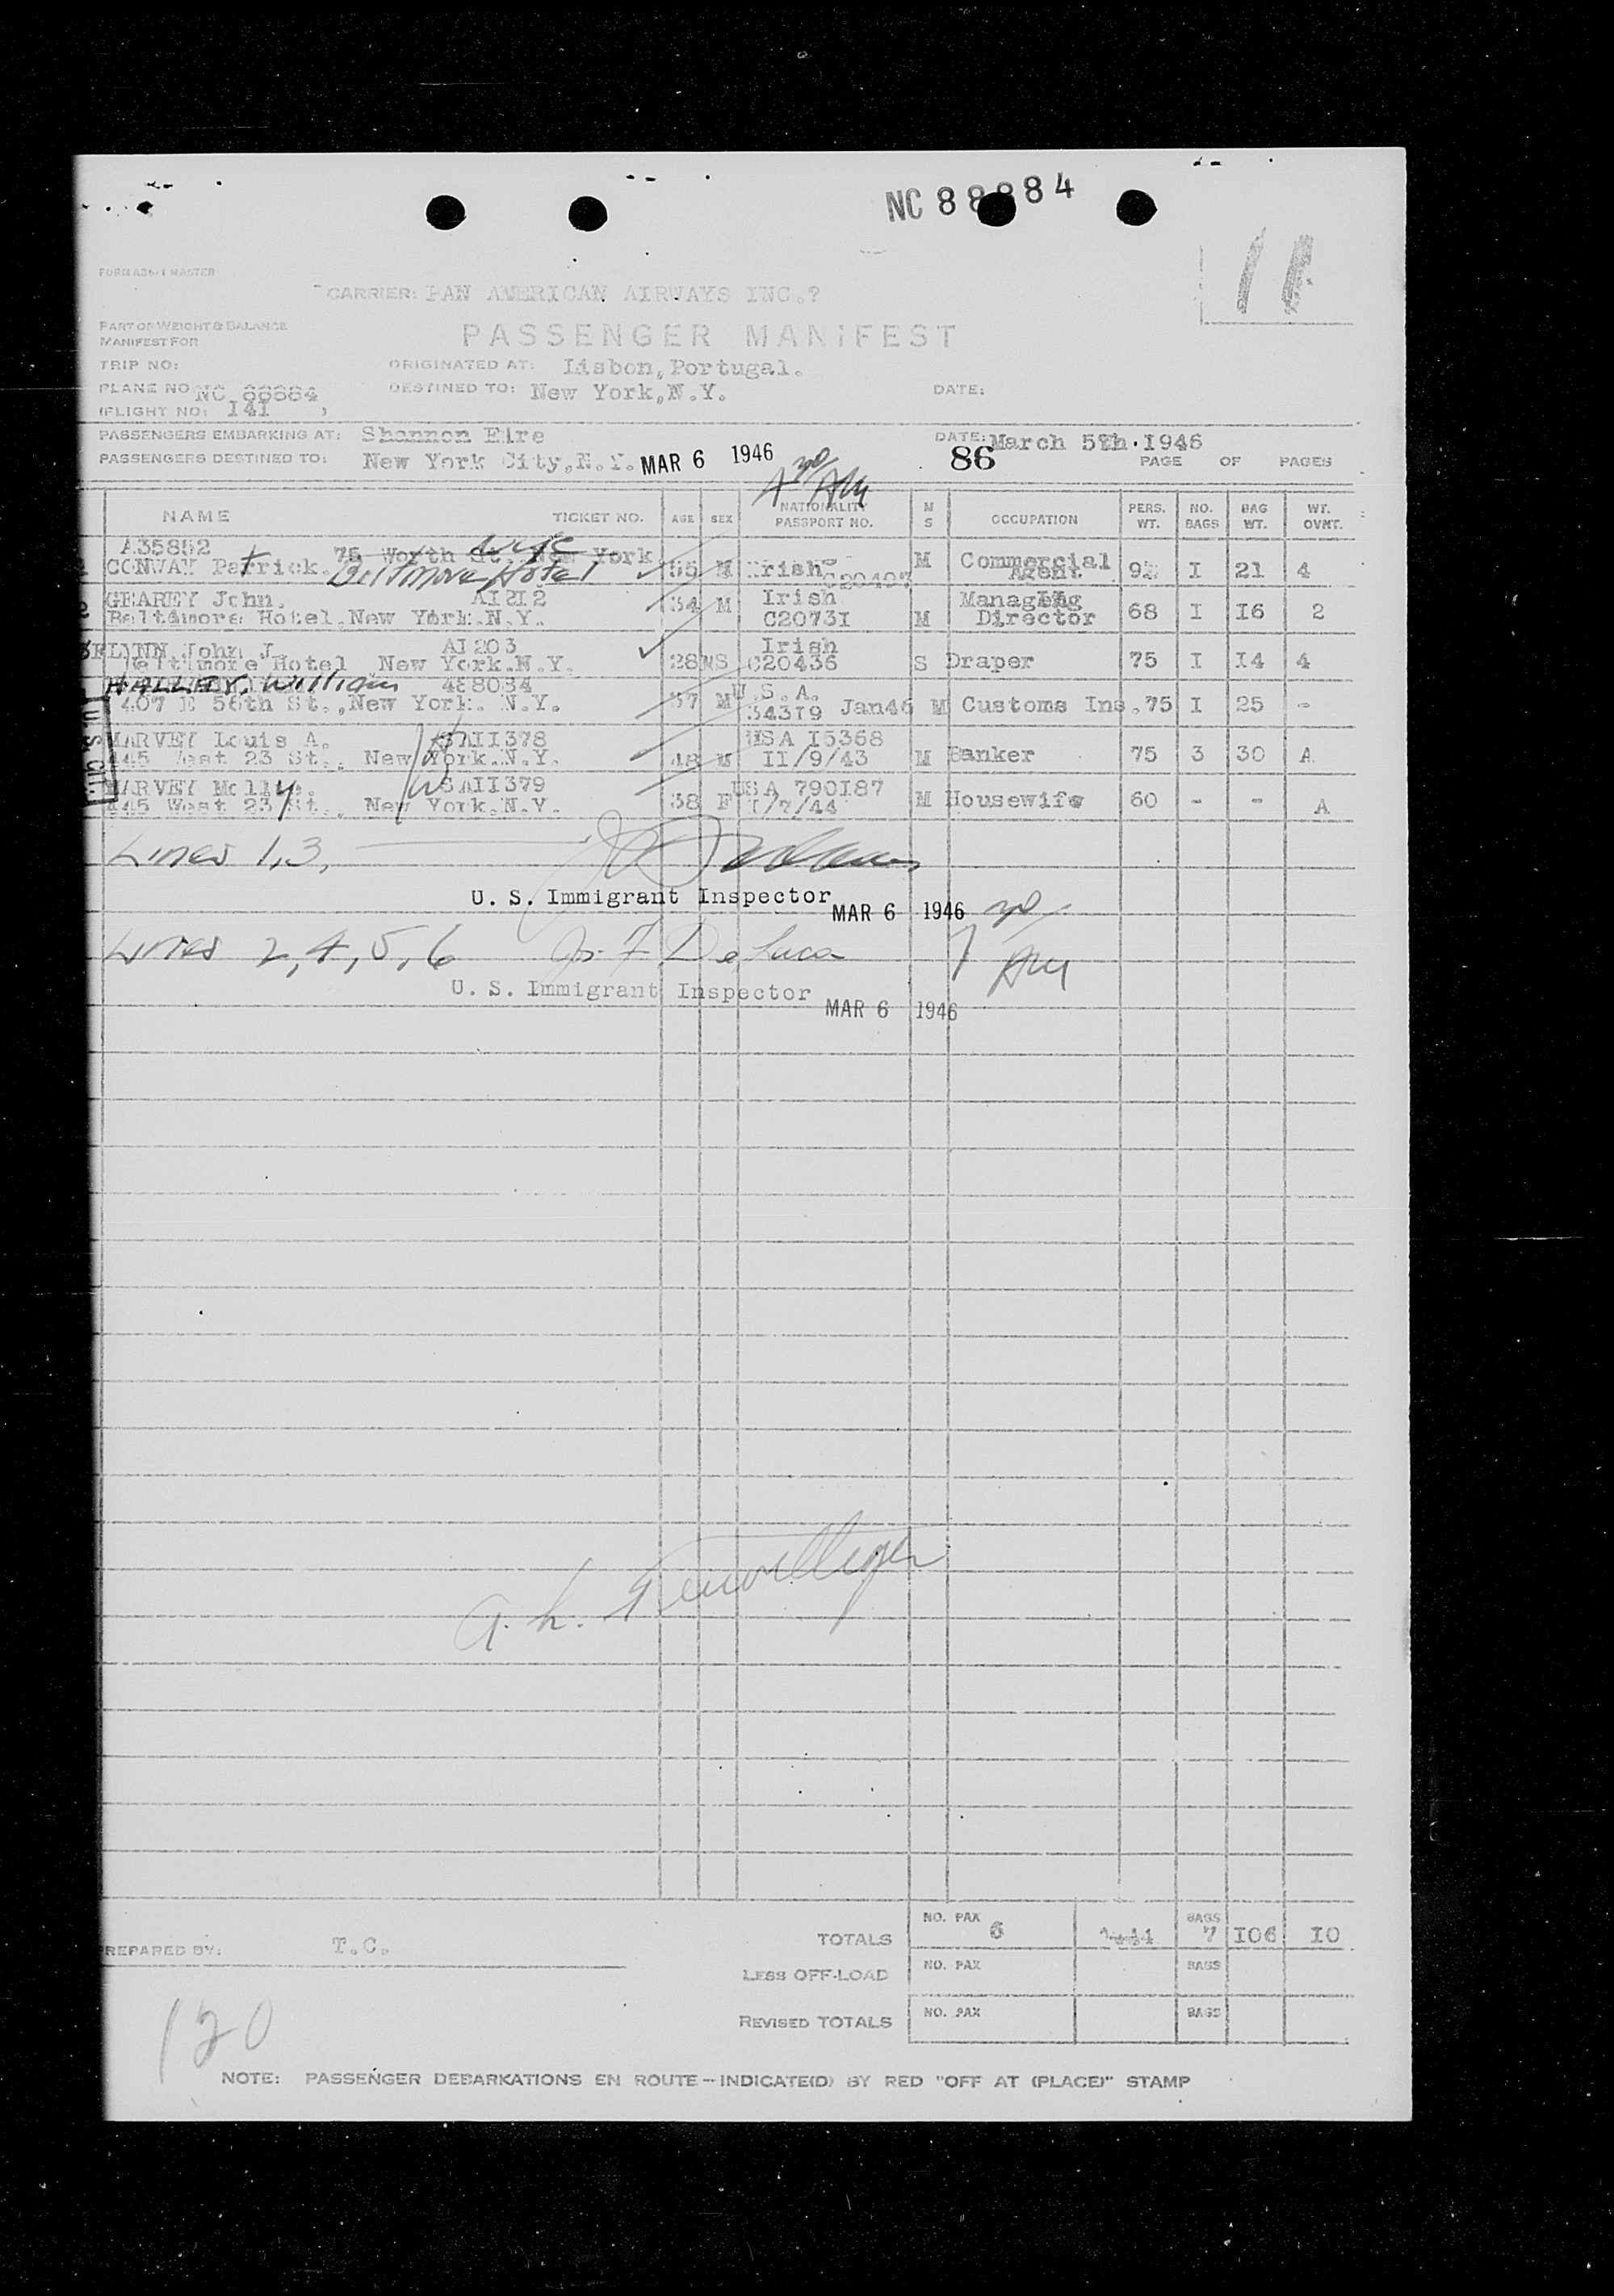 NC 88884
11
FORM A36-1 MASTER
CARRIER: PAN AMERICAN AIRWAYS INC.?
PART OF WEIGHT & BALANCE
MANIFEST FOR
PASSENGER MANIFEST
TRIP NO: ORIGINATED AT: Lisbon, Portugal.
PLANE NO NC 88884 DESTINED TO: New York, N.Y. DATE:
(FLIGHT NO: I4I )
PASSENGERS EMBARKING AT: Shannon Eire DATE: March 5th. I946
PASSENGERS DESTINED TO: New York City, N.Y. MAR 6 1946 86 PAGE OF PAGES
NAME TICKET NO. AGE SEX NATIONALITY PASSPORT NO. M S OCCUPATION PERS. WT. NO. BAGS BAG WT. WT. OVMT.
A35852 75 Worth St. New York NYC
CONWAY Patrick. Beltmore Hotel M Irish M Commercial Agent. I 21 4
GEAREY John. AI2I2 34 M Irish Managing 68 I I6 2
Baltimore Hotel, New York. N.Y. C2073I M Director
FLYNN John J. AI203 Irish
Baltimore Hotel New York. N.Y. 28 C20436 S Draper 75 I I4 4
HALLEY, William 488084 U.S.A.
407 E 56th St., New York. N.Y. 37 M Jan46 M Customs Ins. 75 I 25 -
HARVEY Louis A. SAII378 USA I5368
445 West 23 St., New York. N.Y. 48 M II/9/43 M Banker 75 3 30 A
HARVEY Molly. SAII379 USA 790I87
445 West 23 St., New York. N.Y. 38 F I/7/44 M Housewife 60 - - A
Lines 1,3,
U. S. Immigrant Inspector MAR 6 1946
Lines 2,4,5,6 Jos F De Luca
U. S. Immigrant Inspector MAR 6 1946
TOTALS NO. PAX 6 BAGS 7 I06 I0
PREPARED BY: T.C.
LESS OFF-LOAD NO. PAX BAGS
REVISED TOTALS NO. PAX BAGS
120
NOTE: PASSENGER DEBARKATIONS EN ROUTE -- INDICATE(D) BY RED "OFF AT (PLACE)" STAMP